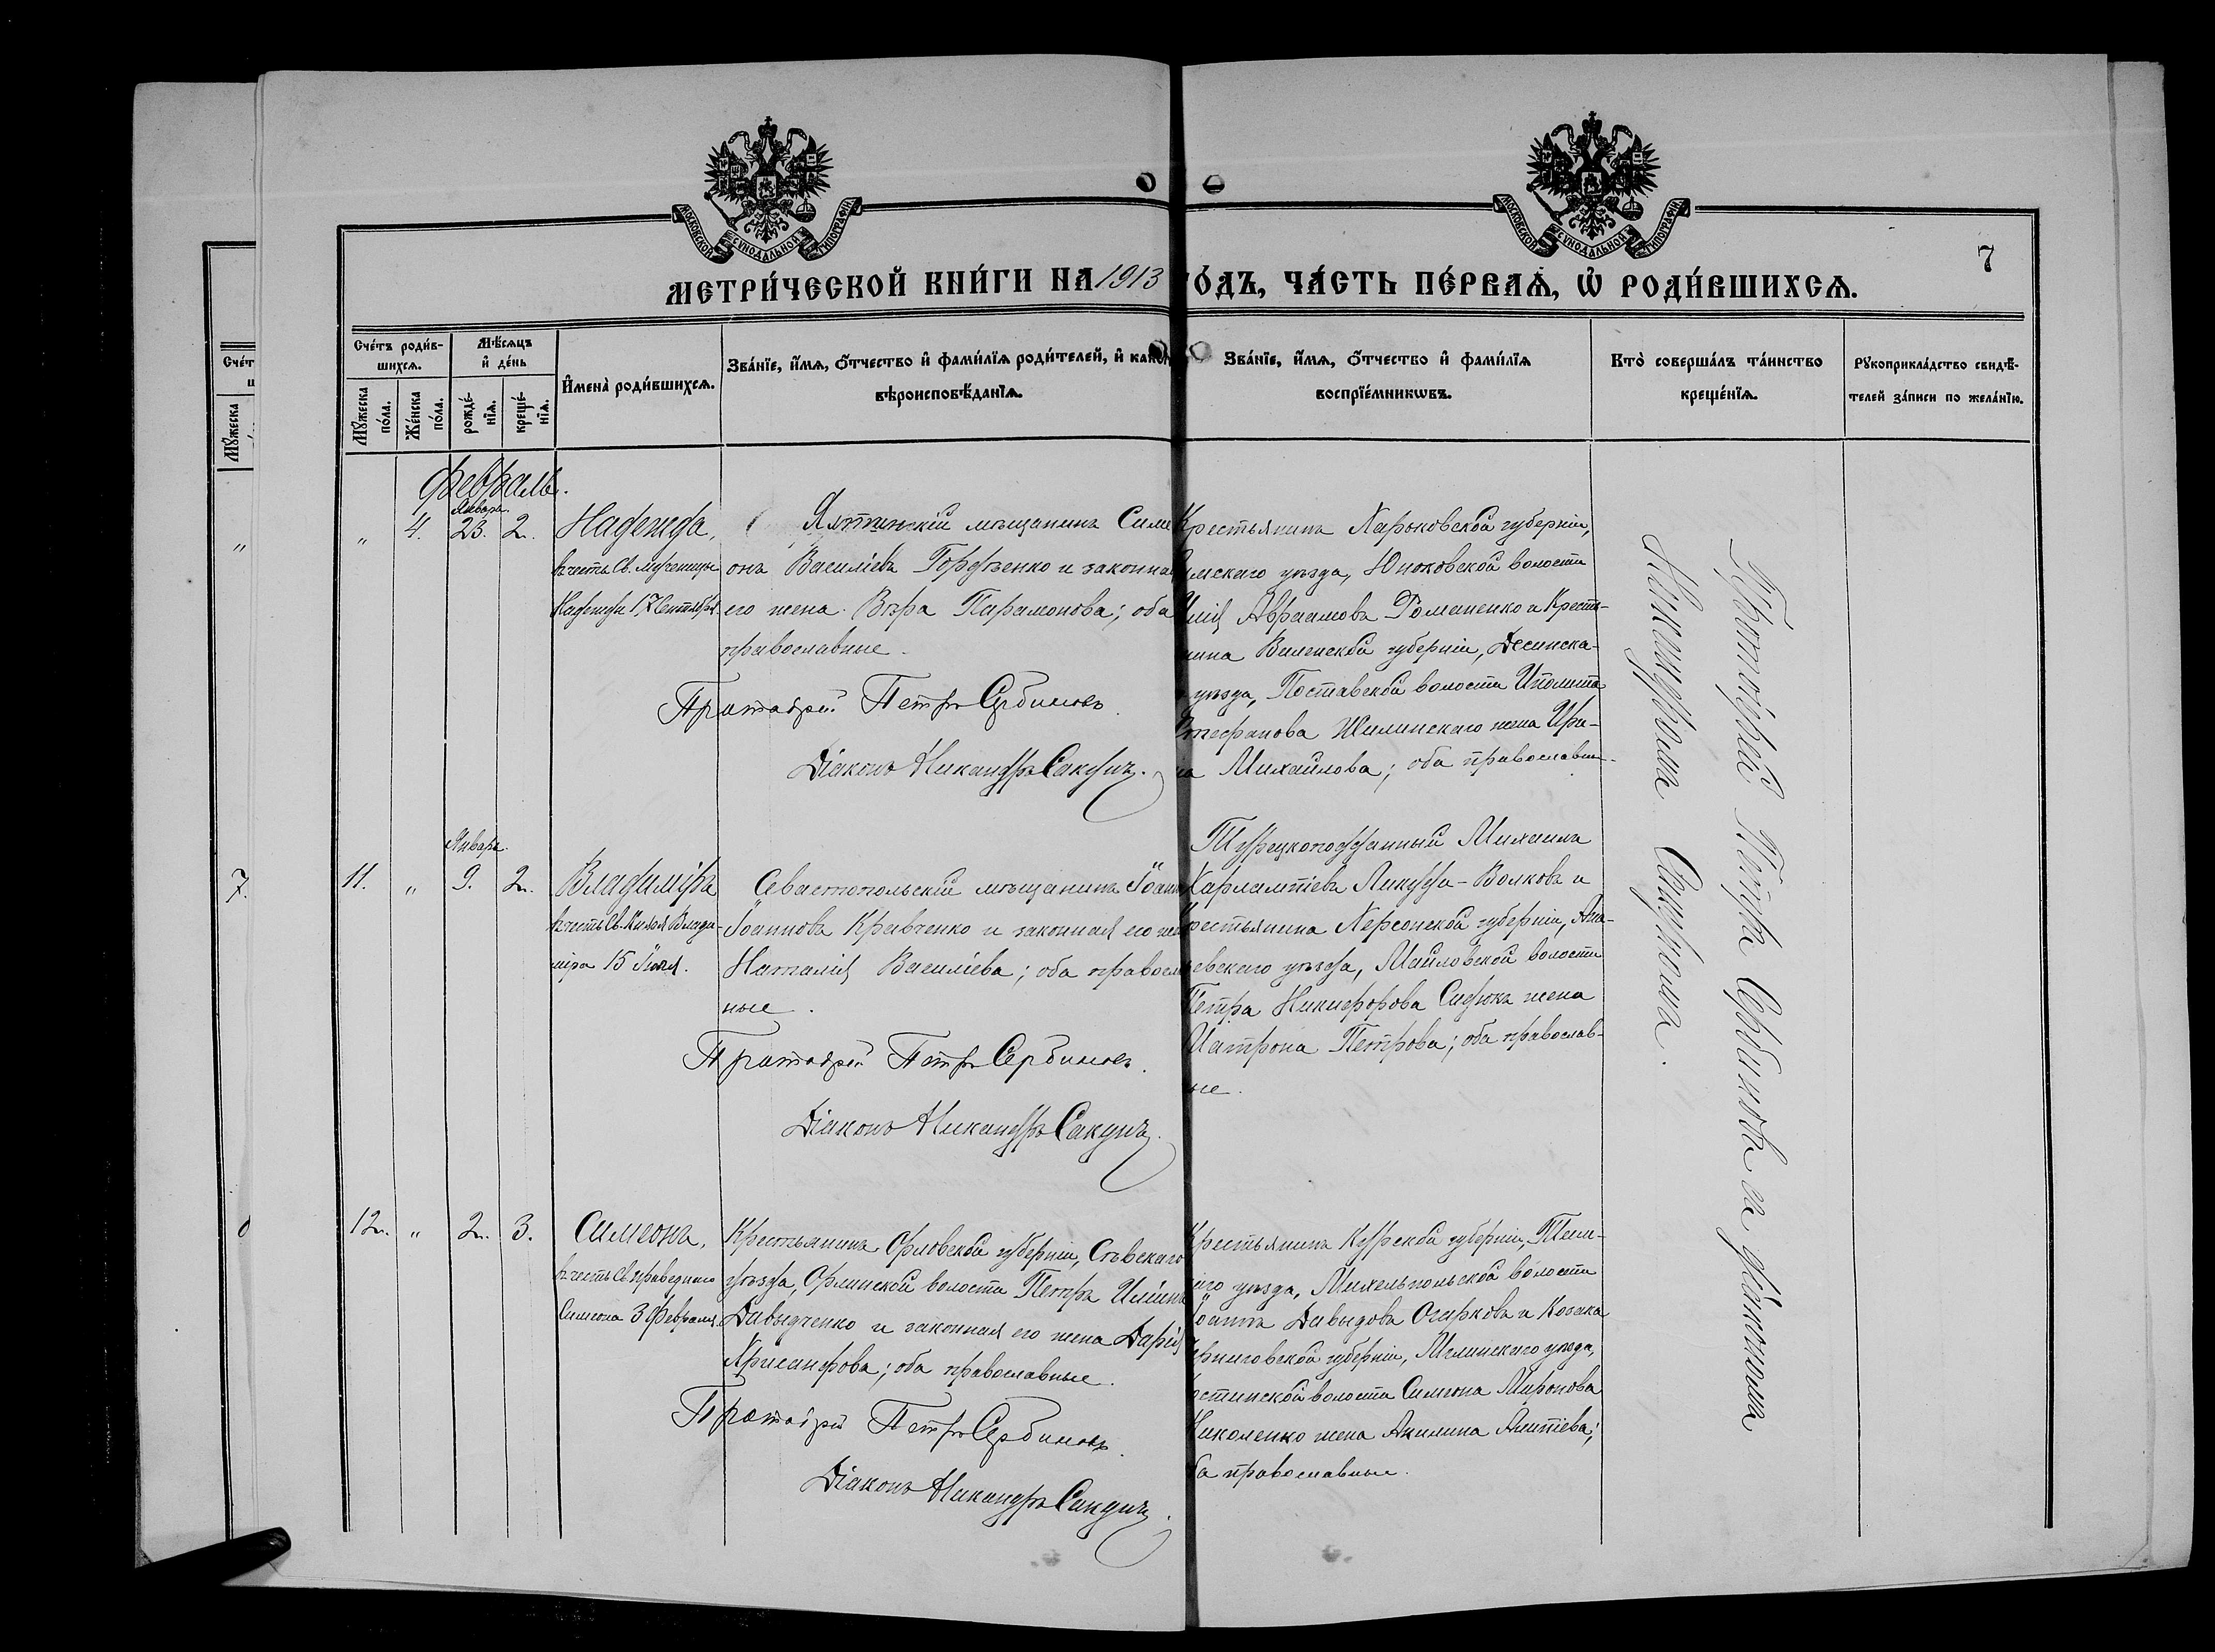 МОСКОВСКОЙ СѴНОДАЛЬНОЙ ТИПОГРАФІИ
МОСКОВСКОЙ СѴНОДАЛЬНОЙ ТИПОГРАФІИ
7
МЕТРИ́ЧЕСКОЙ КНИ́ГИ НА 1913 ГО́ДЪ, ЧА́СТЬ ПЕ́РВАѦ, Ѡ҆ РОДИ́ВШИХСѦ.
Счéтъ роди́в-
шихсѧ.
Мꙋ́жеска
по́ла.
Же́нска
по́ла.
Мѣ́сѧцъ
и҆ де́нь
рожде́-
нїѧ.
креще́-
нїѧ.
И҆мена̀ роди́вшихсѧ.
Зва́нїе, и҆́мѧ, ѻ҆́тчество и҆ фами́лїѧ роди́телей, и҆ како́
вѣроисповѣ́данїѧ.
Зва́нїе, и҆́мѧ, ѻ҆́тчество и҆ фами́лїѧ
воспрїе́мникѡвъ.
Кто̀ соверша́лъ та́инство
креще́нїѧ.
Рꙋкоприкла́дство свидѣ́-
телей за́писи по жела́нїю.
Счéт
Мꙋ́жеска
Февраль.
Января.
" 4. 23. 2.
Надежда,
въ честь Св. мученицы
Надежды 17 Сентября.
Ялтинскій мѣщанинъ Симе
онъ Василіевъ Гордѣенко и законная
его жена Вѣра Парамонова; оба
православные.
Протоіерей Петръ Сербиновъ.
Діаконъ Никандръ Сакунъ.
Крестьянинъ Харьковской губерніи,
умскаго уѣзда, Юнаковской волости
Илія Авраамовъ Романенко и Кресть-
нина Виленской губерніи, Десинска-
уѣзда, Поставской волости Иполита
Стефанова Шилинскаго жена Ири-
на Михайлова; оба православны-
Января.
11. " 9. 2.
Владиміръ
въ честь Св. Князя Влади-
міра 15 Іюля.
Севастопольскій мѣщанинъ Іоаннъ
Іоанновъ Кравченко и законная его же
Наталія Василіева; оба правосл
ные.
Протоіерей Петръ Сербиновъ.
Діаконъ Никандръ Сакунъ.
Турецкоподданный Михаилъ
Харлампіевъ Ликудъ-Волковъ и
крестьянина Херсонской губерніи, Ана-
евскаго уѣзда, Майловской волости
Петра Никифорова Сидюкъ жена
Матрона Петрова; оба православ-
ые.
12. " 2. 3.
Симеонъ,
въ честь Св. праведнаго
Симеона 3 Февраля.
Крестьянинъ Орловской губерніи, Сѣвскаго
уѣзда, Орлинской волости Петръ Иліинъ
Давыдченко и законная его жена Дарія
Хрисанфова; оба православные.
Протоіерей Петръ Сербиновъ.
Діаконъ Никандръ Сакунъ.
Крестьянинъ Курской губерніи, Тим-
аго уѣзда, Михельпольской волости
Іоаннъ Давыдовъ Огарковъ и Козака
ерниговской губерніи, Мглинскаго уѣзда,
остинской волости Симеона Миронова
Николенко жена Акилина Алипіева;
ба православные.
Протоіерей Петръ Сербиновъ съ діакономъ
Никандромъ Сакуномъ.
"
7.